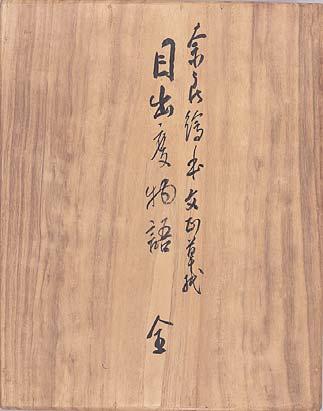 奈良繪本文正草紙
目出度物語 全